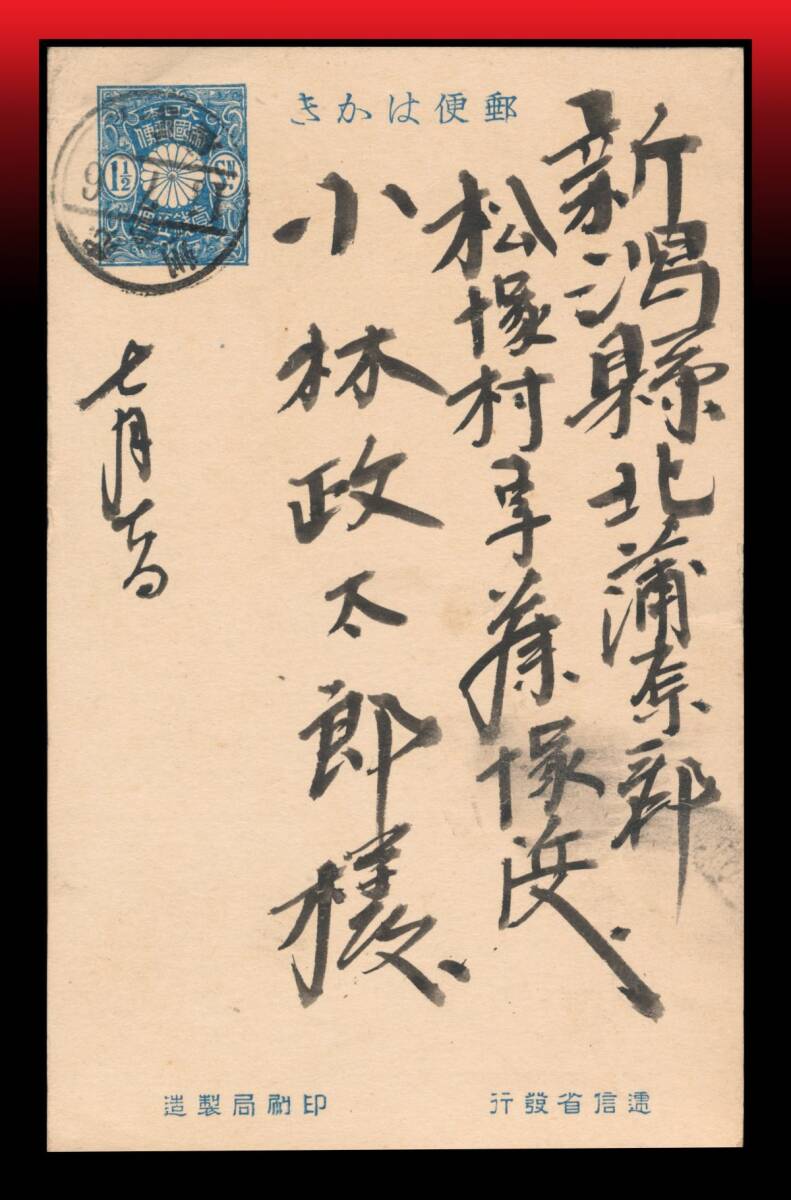 郵便はがき
大日本
帝國郵便
1½ SN.
壹錢五厘
新潟縣北蒲原郡
松塚村字藤塚浜
小林政太郎様
七月
逓信省發行
印刷局製造